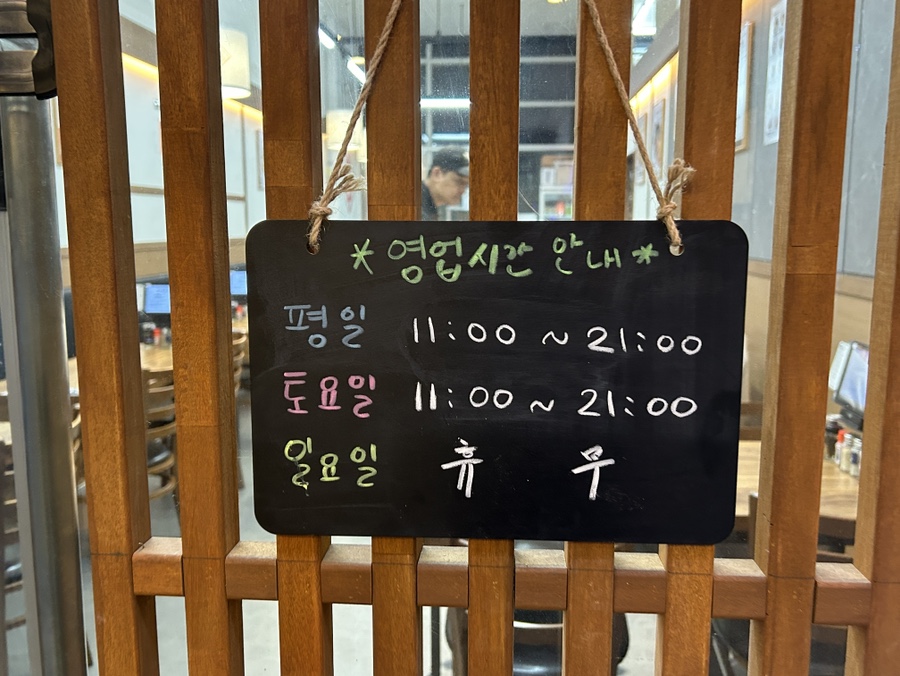 * 영업시간 안내 *
평일 11:00 ~ 21:00
토요일 11:00 ~ 21:00
일요일 휴 무